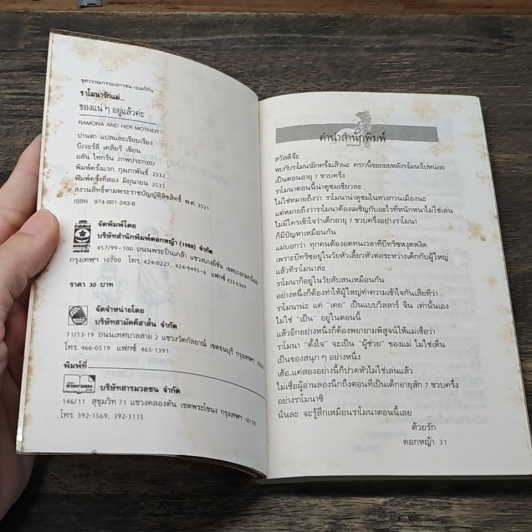 ชุดวรรณกรรมเยาวชน-อเมริกัน
ราโมนารักแม่...
ของแน่ ๆ อยู่แล้วค่ะ
RAMONA AND HER MOTHER
ปานตา แปลและเรียบเรียง
บีเวอร์ลี่ เคลียรี่ เขียน
อลัน ไทกรีน ภาพประกอบ
พิมพ์ครั้งแรก กุมภาพันธ์ 2532
พิมพ์ครั้งที่สอง มิถุนายน 2531
สงวนลิขสิทธิ์ตามพระราชบัญญัติลิขสิทธิ์ พ.ศ. 2521
ISBN 974-601-243-6
จัดพิมพ์โดย
บริษัทสำนักพิมพ์ดอกหญ้า (1988) จำกัด
457/99-100 ถนนพระปิ่นเกล้า แขวงบางยี่ขัน เขตบางกอกน้อย
กรุงเทพฯ 10700 โทร. 424-0227, 434-9495-6 แฟกซ์ 433-4369
ราคา 30 บาท
จัดจำหน่ายโดย
บริษัทสามัคคีสาส์น จำกัด
71/13-19 ถนนเทศบาลสาย 2 แขวงวัดกัลยาณ์ เขตธนบุรี กรุงเทพฯ
โทร. 466-0519 แฟกซ์ 465-1391
พิมพ์ที่
บริษัทสารมวลชน จำกัด
146/11 สุขุมวิท 71 แขวงคลองตัน เขตพระโขนง กรุงเทพฯ 10110
โทร. 392-1569, 392-3115
คำนำสำนักพิมพ์
สวัสดีจ้ะ
พบกับราโมนาอีกครั้งแล้วนะ คราวนี้ขอถอยหลังราโมนาไปหน่อย
เป็นตอนอายุ 7 ขวบครึ่ง
ราโมนาตอนนี้น่าดูชมเชียวละ
ไม่ใช่หมายถึงว่า ราโมนาน่าดูชมในทางกวนเมืองนะ
แต่หมายถึงว่าราโมนาต้องเผชิญกับอะไรที่หนักหนาไม่ใช่เล่น
ไม่มีใครเข้าใจว่าเด็กอายุ 7 ขวบครึ่งอย่างราโมนา
ก็มีปัญหาเหมือนกัน
แม่บอกว่า ทุกคนต้องอดทนเวลาที่บีทริซหงุดหงิด
เพราะบีทริซอยู่ในวัยหัวเลี้ยวหัวต่อระหว่างเด็กกับผู้ใหญ่
แล้วทีราโมนาล่ะ
ราโมนาก็อยู่ในวัยสับสนเหมือนกัน
อย่างหนึ่งก็ต้องทำให้ผู้ใหญ่ทำความเข้าใจกันเสียทีว่า
ราโมนาน่ะ แค่ "เคย" เป็นแบบวิลลาร์ จีน เท่านั้นเอง
ไม่ใช่ "เป็น" อยู่ในตอนนี้
แล้วอีกอย่างหนึ่งก็ต้องพยายามพิสูจน์ให้แม่เชื่อว่า
ราโมนา "ตั้งใจ" จะเป็น "ผู้ช่วย" ของแม่ ไม่ใช่เห็น
เป็นของสนุก ๆ อย่างหนึ่ง
เฮ้อ..แค่สองอย่างนี้ก็ปวดหัวไม่ใช่เล่นแล้ว
ไม่เชื่อผู้อ่านลองนึกถึงตอนที่เป็นเด็กอายุสัก 7 ขวบครึ่ง
อย่างราโมนาซิ
นั่นละ จะรู้สึกเหมือนราโมนาตอนนี้เลย
ด้วยรัก
ดอกหญ้า 31